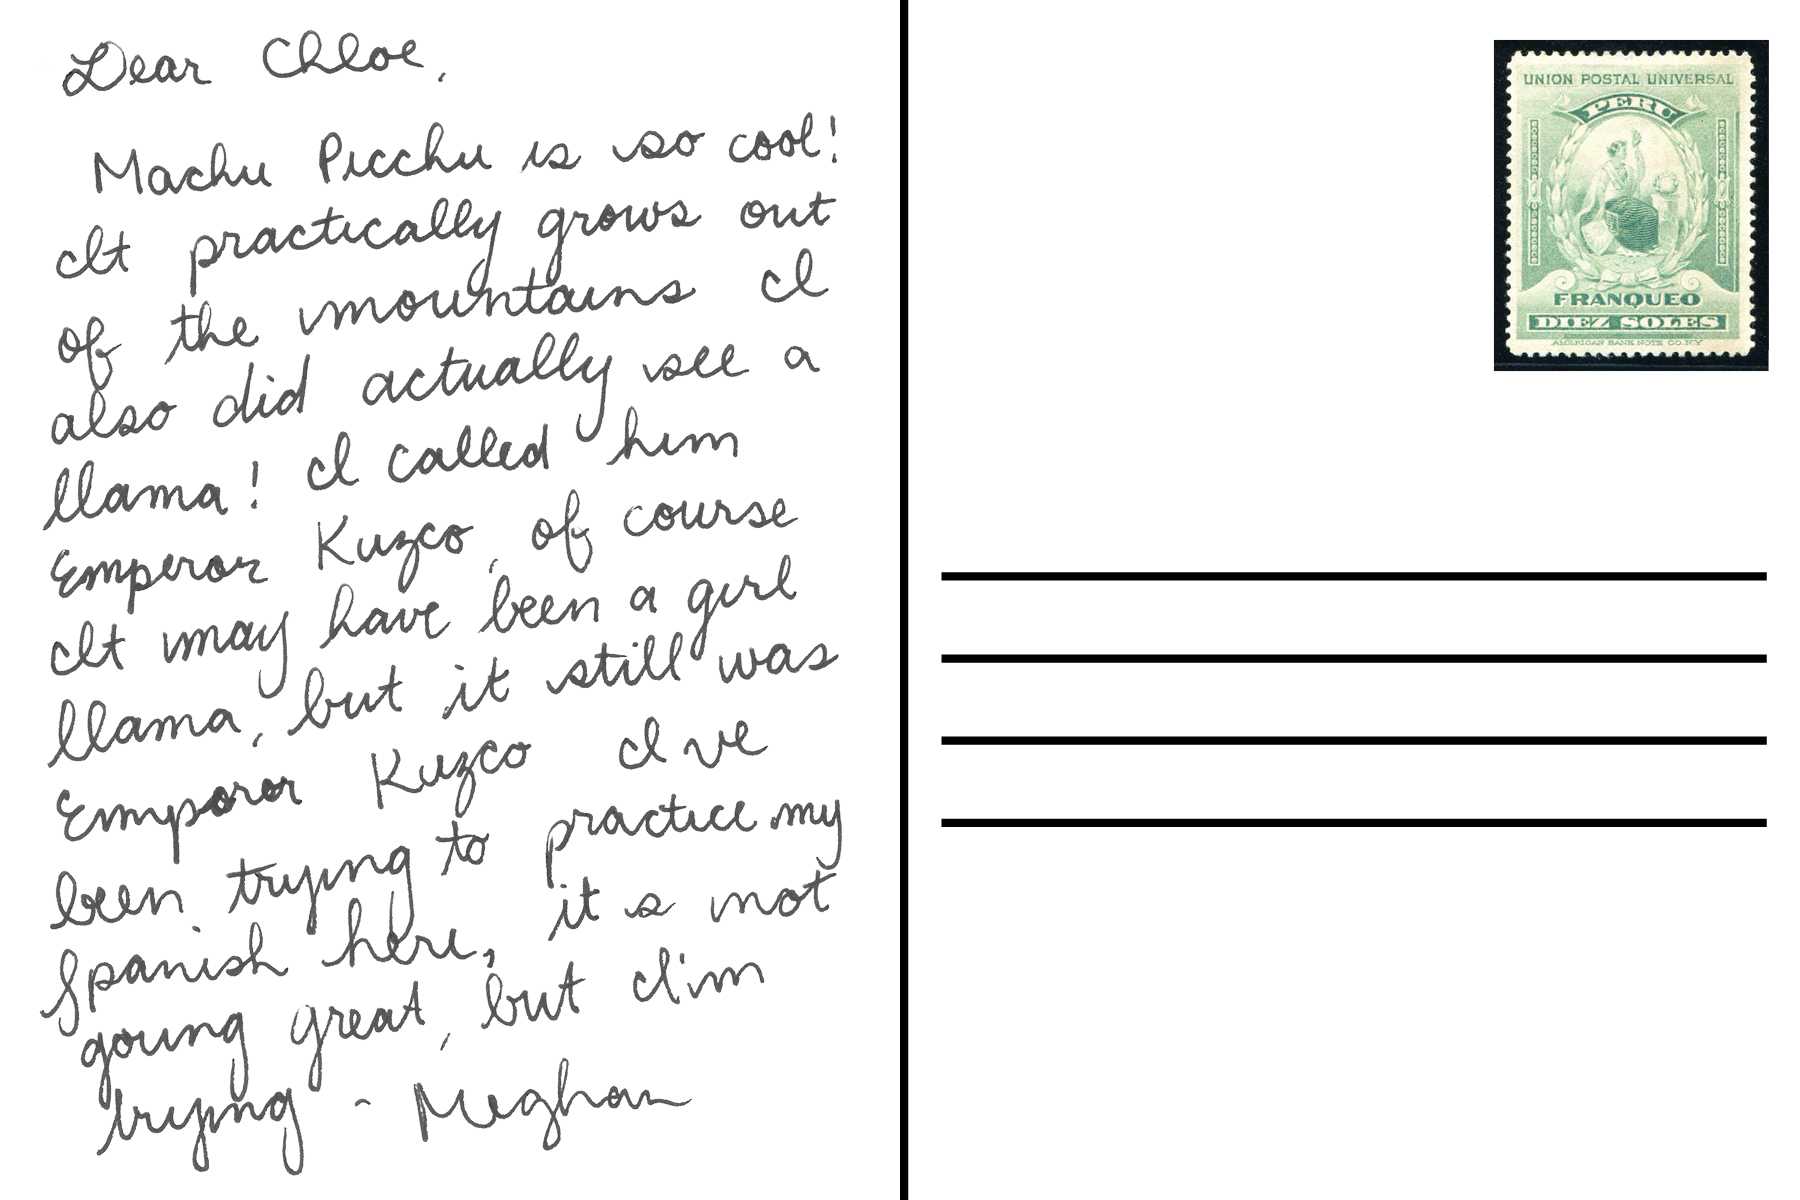 Dear Chloe,
Machu Picchu is so cool!
It practically grows out
of the mountains I
also did actually see a
llama! I called him
Emperor Kuzco, of course
It may have been a girl
llama, but it still was
Emporor Kuzco I've
been trying to practice my
Spanish here, it s not
going great, but I'm
trying - Meghan
UNION POSTAL UNIVERSAL
PERU
FRANQUEO
DIEZ SOLES
AMERICAN BANK NOTE CO. N.Y.